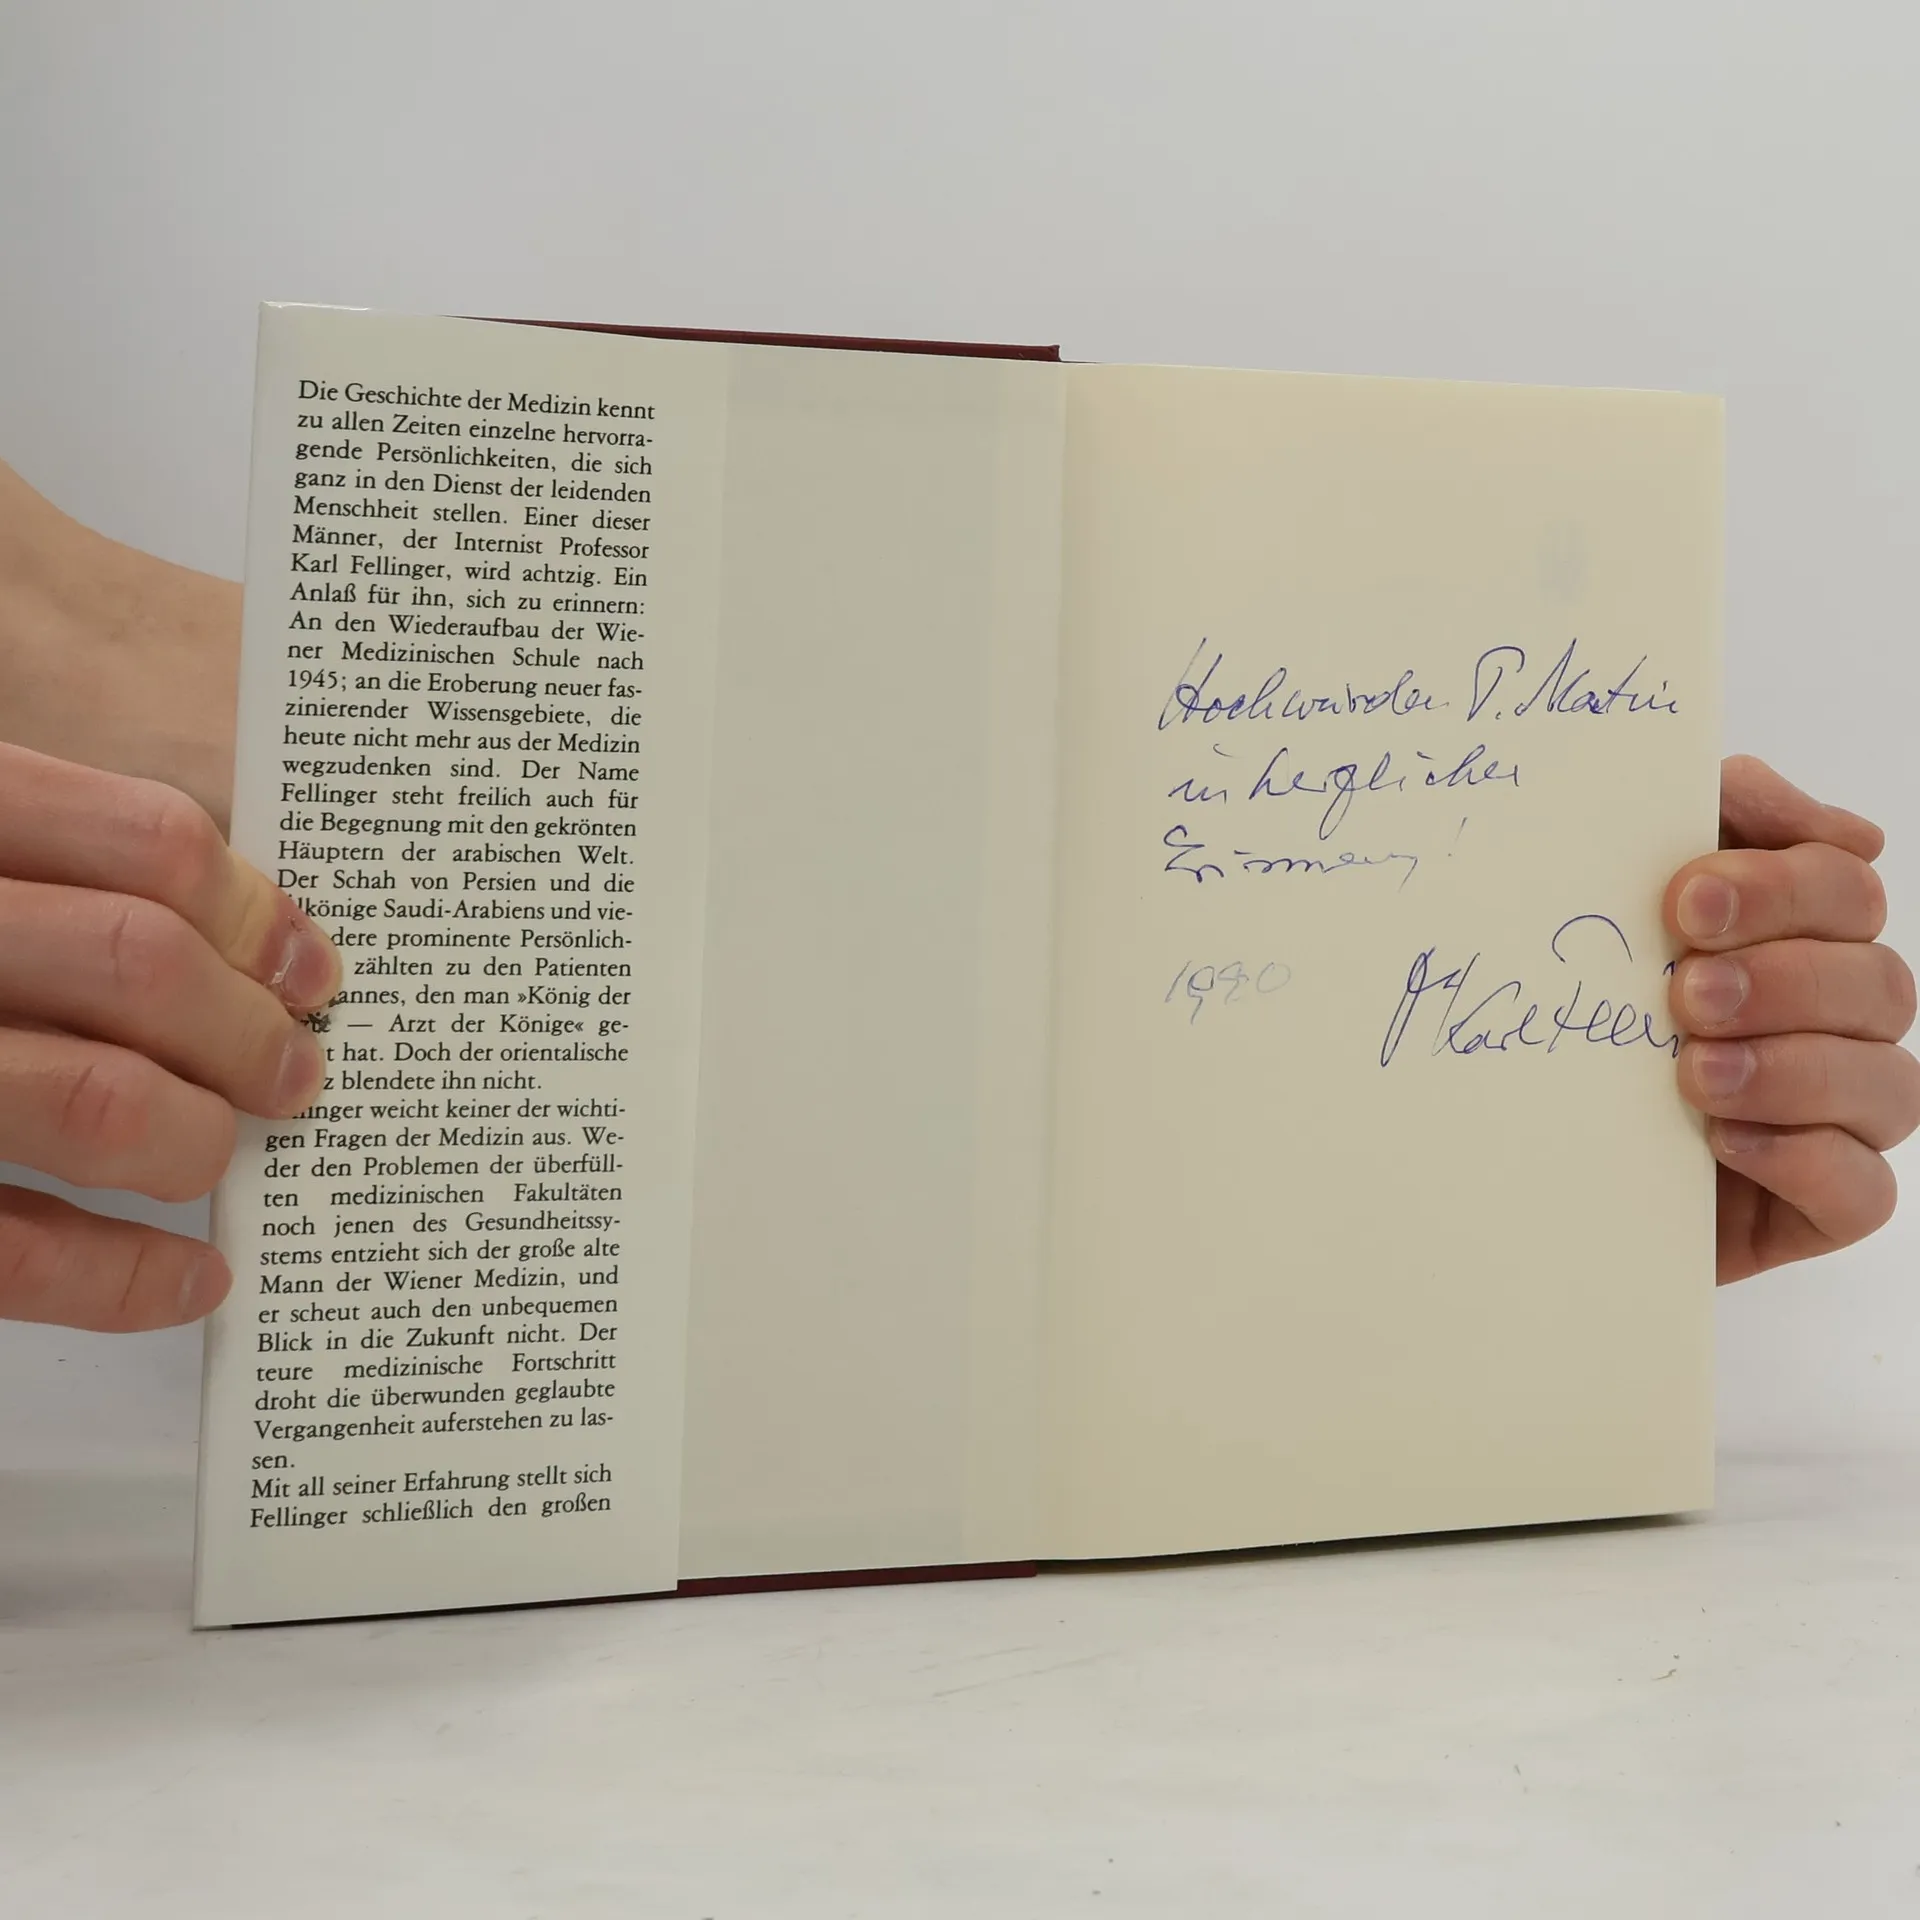 Die Geschichte der Medizin kennt
zu allen Zeiten einzelne hervorra-
gende Persönlichkeiten, die sich
ganz in den Dienst der leidenden
Menschheit stellen. Einer dieser
Männer, der Internist Professor
Karl Fellinger, wird achtzig. Ein
Anlaß für ihn, sich zu erinnern:
An den Wiederaufbau der Wie-
ner Medizinischen Schule nach
1945; an die Eroberung neuer fas-
zinierender Wissensgebiete, die
heute nicht mehr aus der Medizin
wegzudenken sind. Der Name
Fellinger steht freilich auch für
die Begegnung mit den gekrönten
Häuptern der arabischen Welt.
Der Schah von Persien und die
lkönige Saudi-Arabiens und vie-
dere prominente Persönlich-
zählten zu den Patienten
annes, den man »König der
— Arzt der Könige« ge-
t hat. Doch der orientalische
z blendete ihn nicht.
inger weicht keiner der wichti-
gen Fragen der Medizin aus. We-
der den Problemen der überfüll-
ten medizinischen Fakultäten
noch jenen des Gesundheitssy-
stems entzieht sich der große alte
Mann der Wiener Medizin, und
er scheut auch den unbequemen
Blick in die Zukunft nicht. Der
teure medizinische Fortschritt
droht die überwunden geglaubte
Vergangenheit auferstehen zu las-
sen.
Mit all seiner Erfahrung stellt sich
Fellinger schließlich den großen
Hochwürden P. Martin
in herzlicher
Erinnerung!
Karl